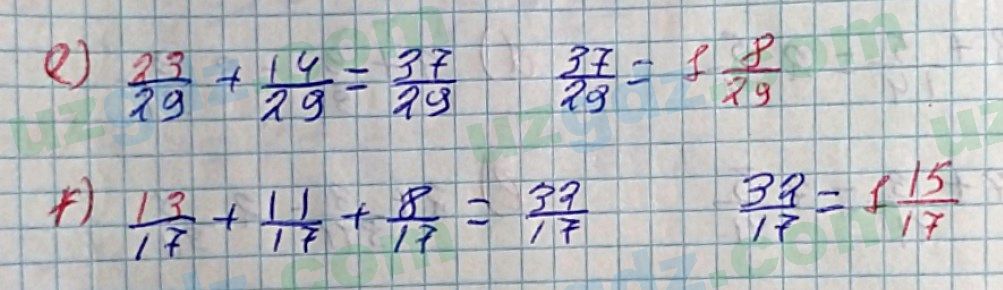 e) 23/29 + 14/29 = 37/29   37/29 = 1 8/29
f) 13/17 + 11/17 + 8/17 = 32/17   32/17 = 1 15/17
uzgdz.com